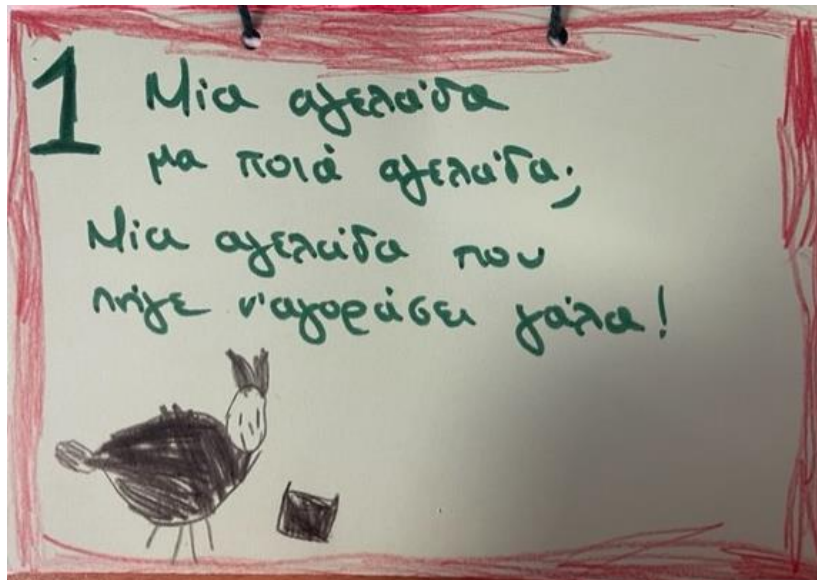 1 Μία αγελάδα
μα ποιά αγελάδα;
Μία αγελάδα που
πήγε ν'αγοράσει γάλα!